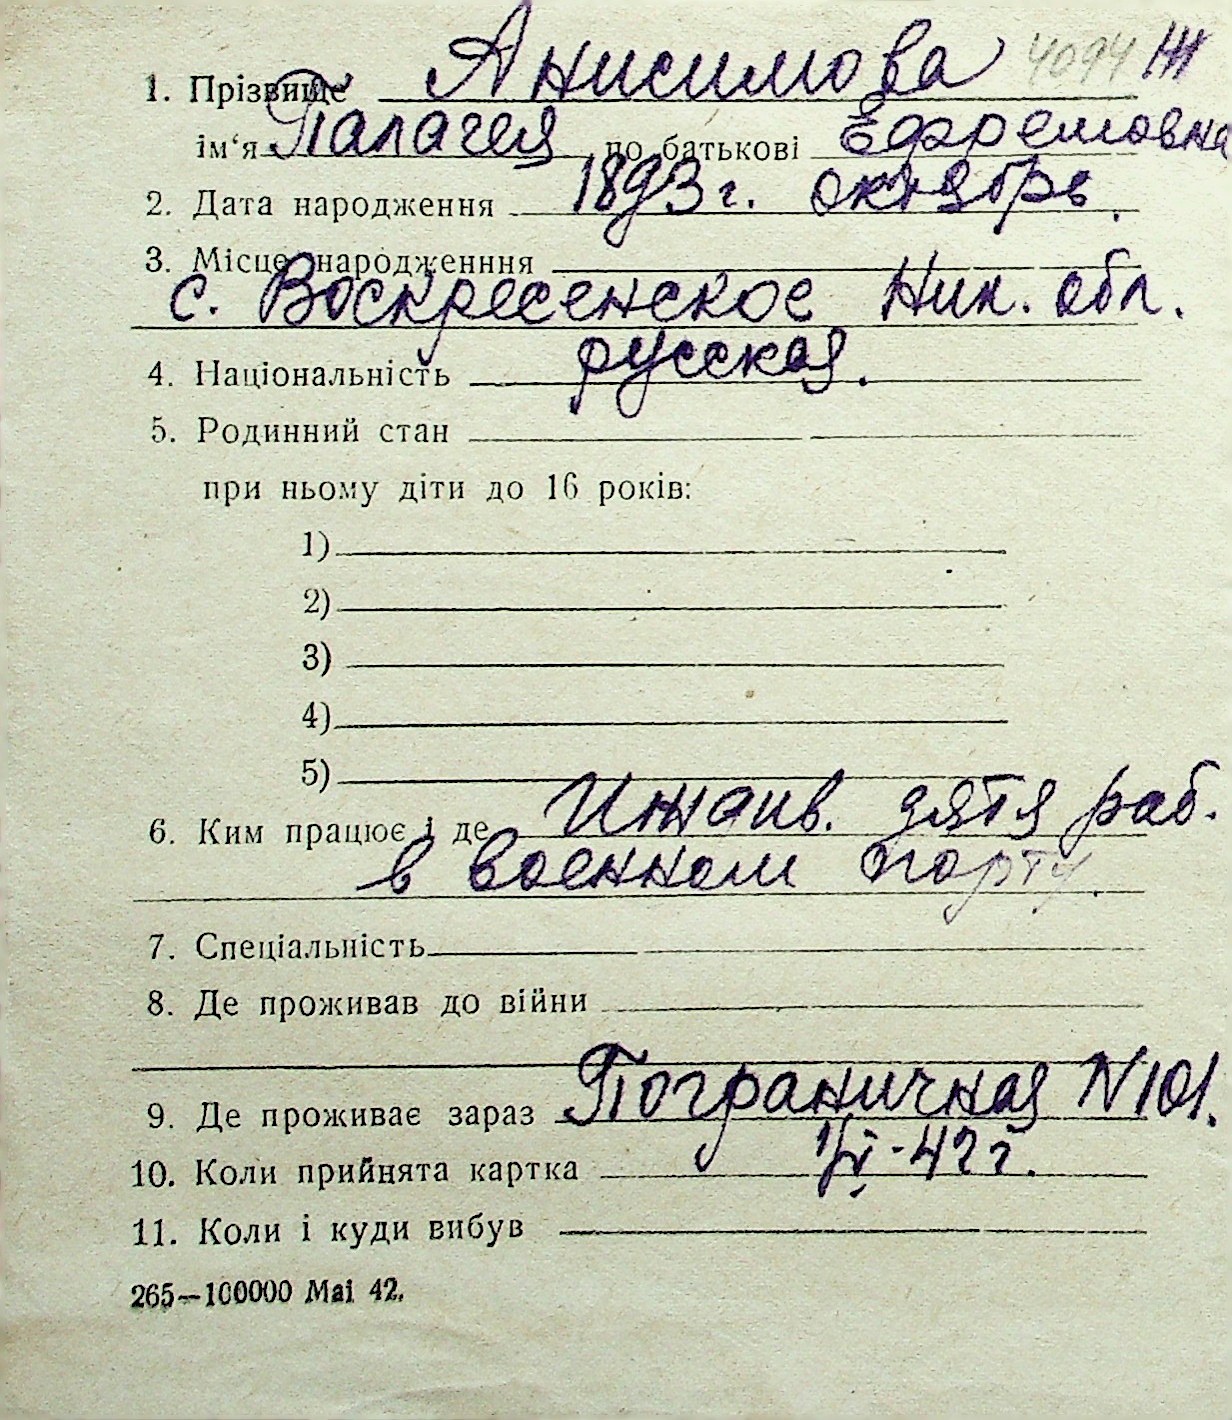 4094 Ж
1. Прізвище Анисимова
ім‘я Палагея по батькові Ефремовна
2. Дата народження 1893 г. октябрь.
3. Місце народженння
с. Воскресенское Ник. обл.
4. Національність русская.
5. Родинний стан
при ньому діти до 16 років:
1)
2)
3)
4)
5)
6. Ким працює і де Иждив. дятя раб.
в военном порту.
7. Спеціальність
8. Де проживав до війни
9. Де проживає зараз Пограничная N101.
10. Коли прийнята картка -42 г.
11. Коли і куди вибув
265—100000 Mai 42.